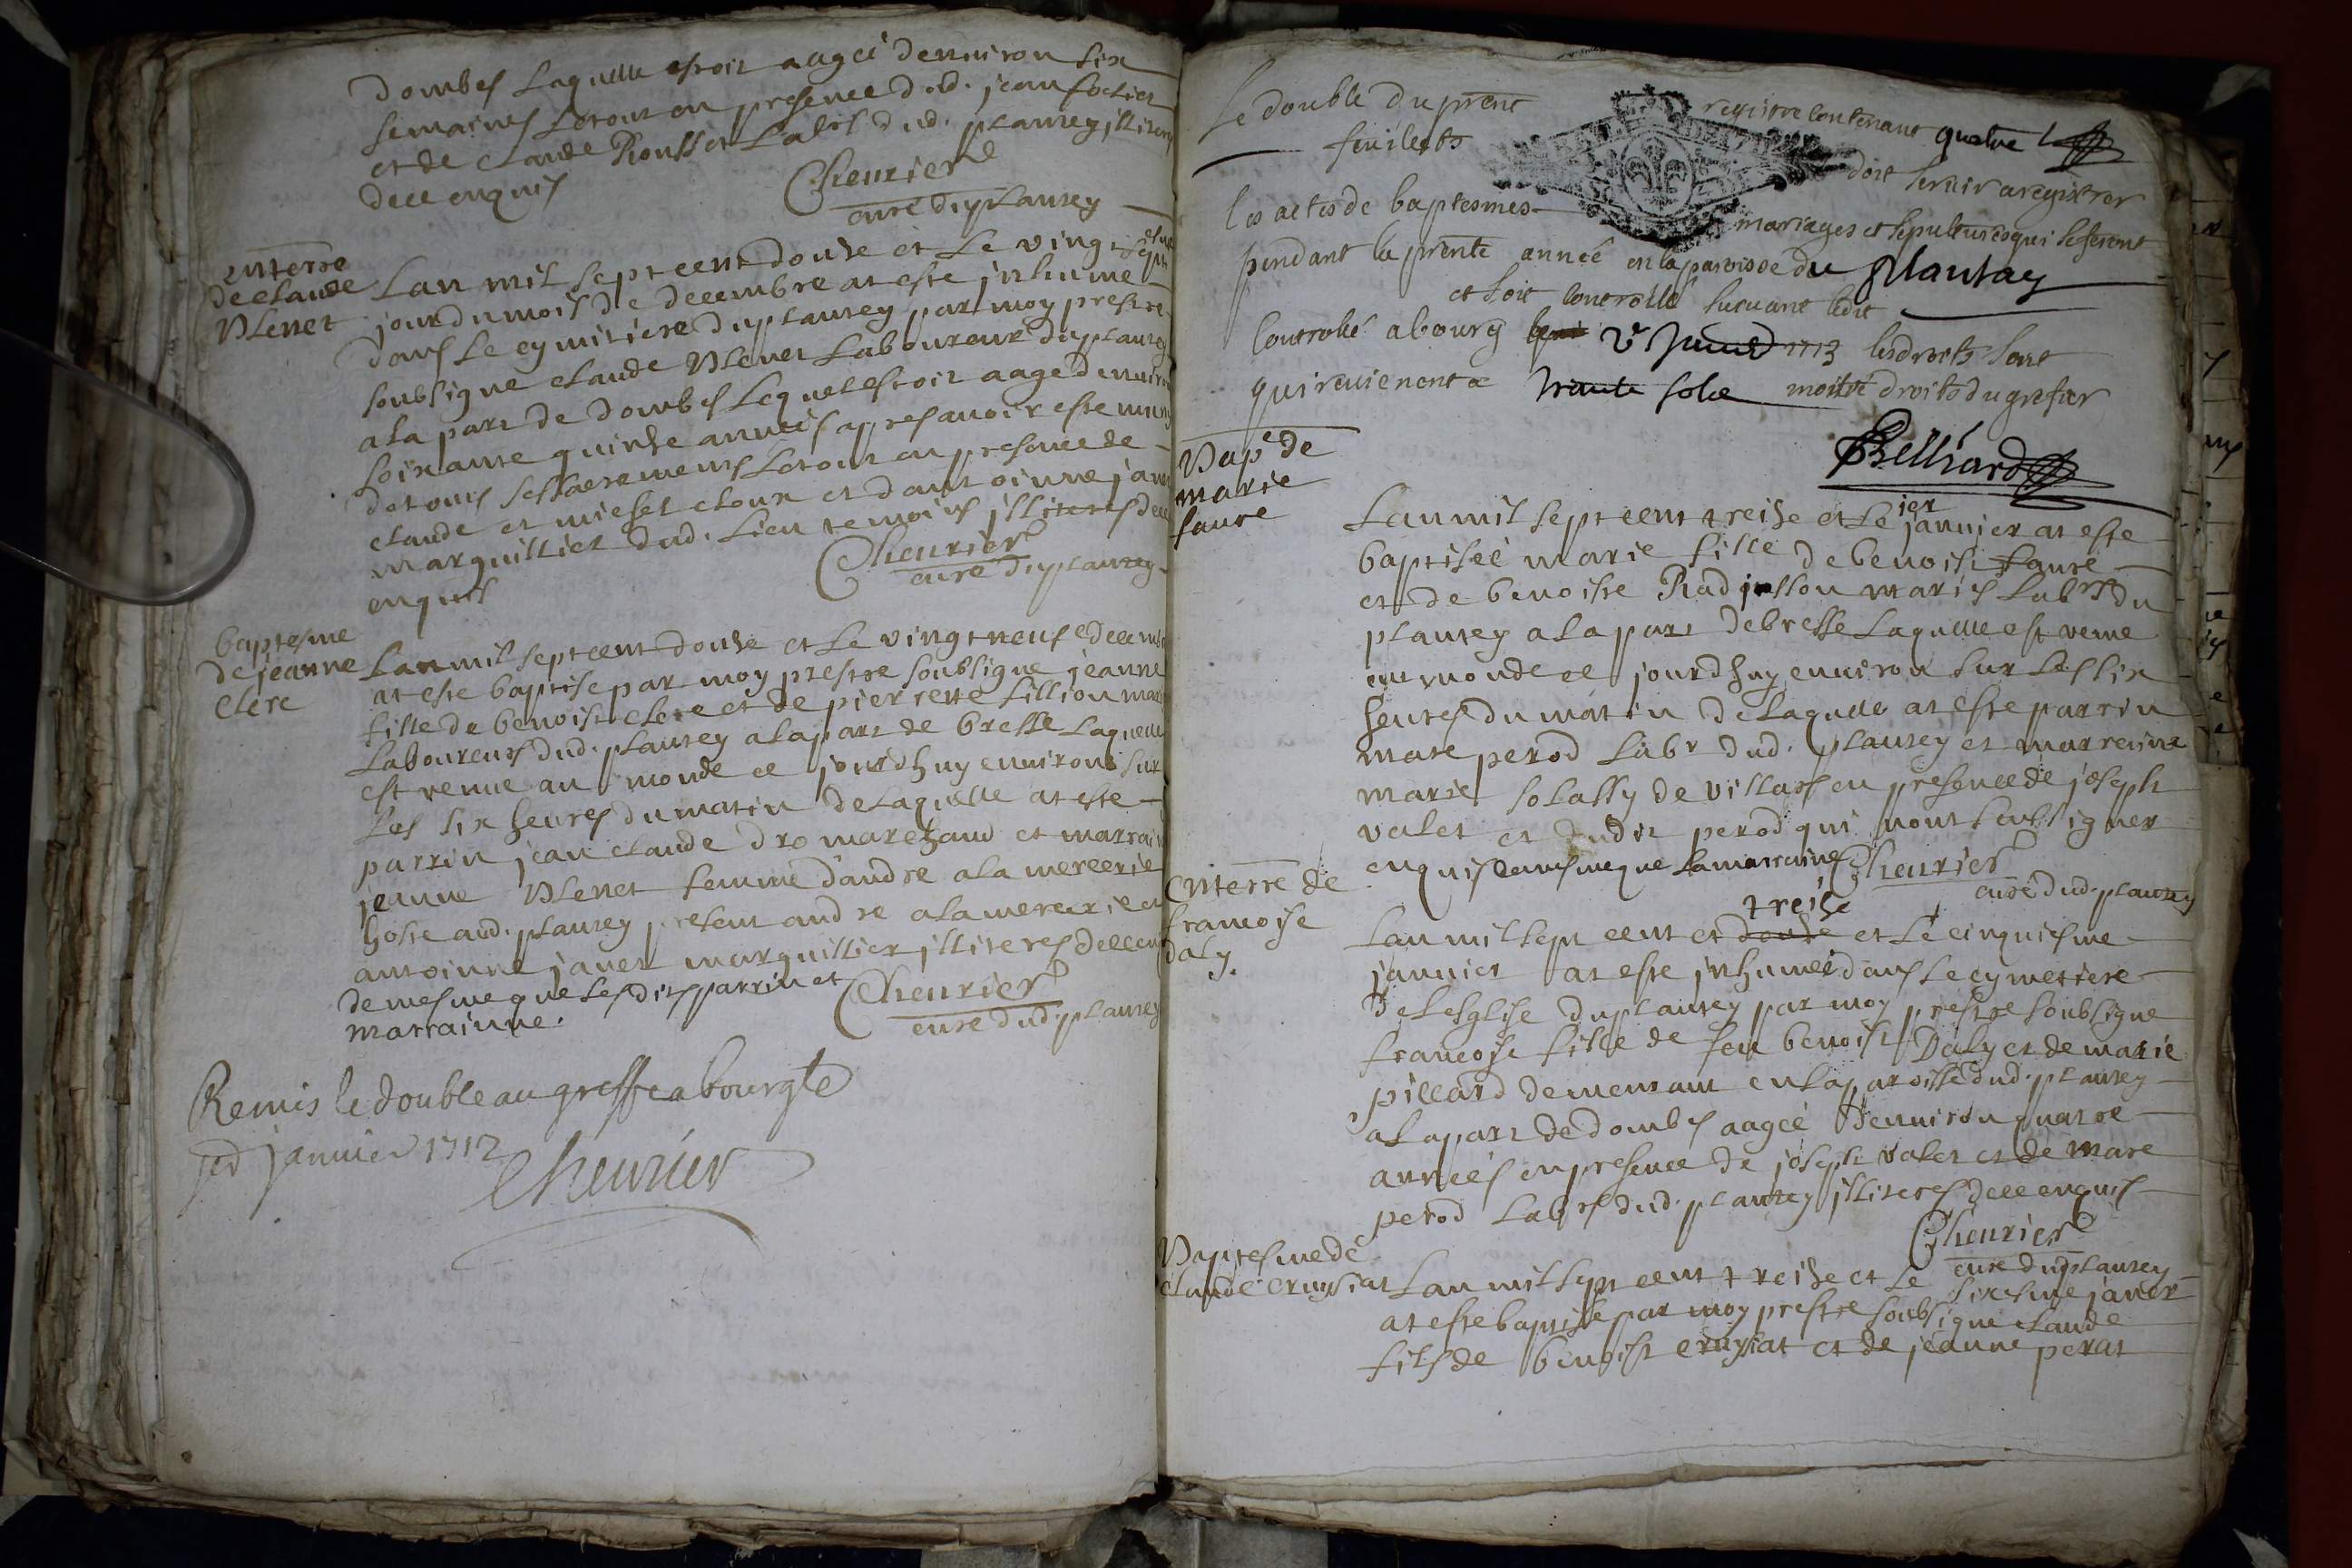 dombes laquelle estoit aagée denviron six
semaines le tout en presence dud. jean
et de claude Rousset dud. plantey illiteres
de ce enquis
Cheurier
curé du plantey
enterre
de claude
Venet
Lan mil sept cent douse et le vingt
jour du mois de decembre at esté inhumé
dans le cymitiere du plantey par moy prestre
soubsigné claude Venet laboureur du plantey
a la part de dombes lequel estoit aagé denviron
soixante quinse années apres avoir esté muny
de tous ses sacrements le tout en presence de
claude et et dantoinne janet
marguillier dud. lieu temoins illiteres de ce
enquis
Cheurier
curé du plantey
baptesme
de jeanne
clere
Lan mil sept cent douse et le vingt neuf decembre
at esté baptisé par moy prestre soubsigné jeanne
fille de benoist clere et de pierrette fillion mariés
laboureurs dud. plantey a la part de bresse laquelle
est venue au monde ce jourdhuy environs sur
les six heures du matin de laquelle at esté
parrin jean claude dro marchand et marraine
jeanne Venet femme dandré a la mercerie
hoste aud. plantey present andré a la mercerie et
antoinne janet marguillier illiteres de ce enquis
de mesme que lesdits parrin et
marrainne.
Cheurier
curé dud. plantey
Remis le double au greffe a bourg le
janvier 1712
Cheurier
Le double du prent
registre contenant quatre
feuilets
doit servir a registrer
les actes de baptesmes
mariages et sepultures qui se feront
pendant la prente année en la paroisse du Plantay
et soit controllé suivant ledit
Controllé a bourg le 2e Janvier 1713 les droits sont
qui revienent a trante sols moitié droits du grefier
Belliard
Bapé de
marie
faure
Lan mil sept cent treise et le ier janvier at esté
baptisée marie fille de benoist faure
et de benoiste Radisson mariés labrs du
plantey a la part de bresse laquelle est venue
au monde ce jourdhuy environ sur les six
heures du matin de laquelle at esté parrin
marc perod labr dud. plantey et marreine
marie solassy de villars en presence de joseph
valet et dudit perod qui nont seu signer
enquis de mesme que la marraine
Cheurier
curé dud. plantey
enterré de
francoise
daly.
Lan mil sept cent et douse treise et le cinquiesme
janvier at esté inhumée dans le cymetiere
de lesglise du plantey par moy prestre soubsigné
francoise fille de feu benoist Daly et de marie
pillard demeurant en la paroisse dud. plantey
a la part de dombes aagée denviron quatre
années en presence de joseph valet et de marc
perod labrs dud. plantey illiteres de ce enquis
Cheurier
curé dud plantey
Baptesme de
claude cruysiat
Lan mil sept cent treise et le sixiesme janvier
at esté baptisé par moy prestre soubsigné claude
fils de benoist cruysiat et de jeanne perat